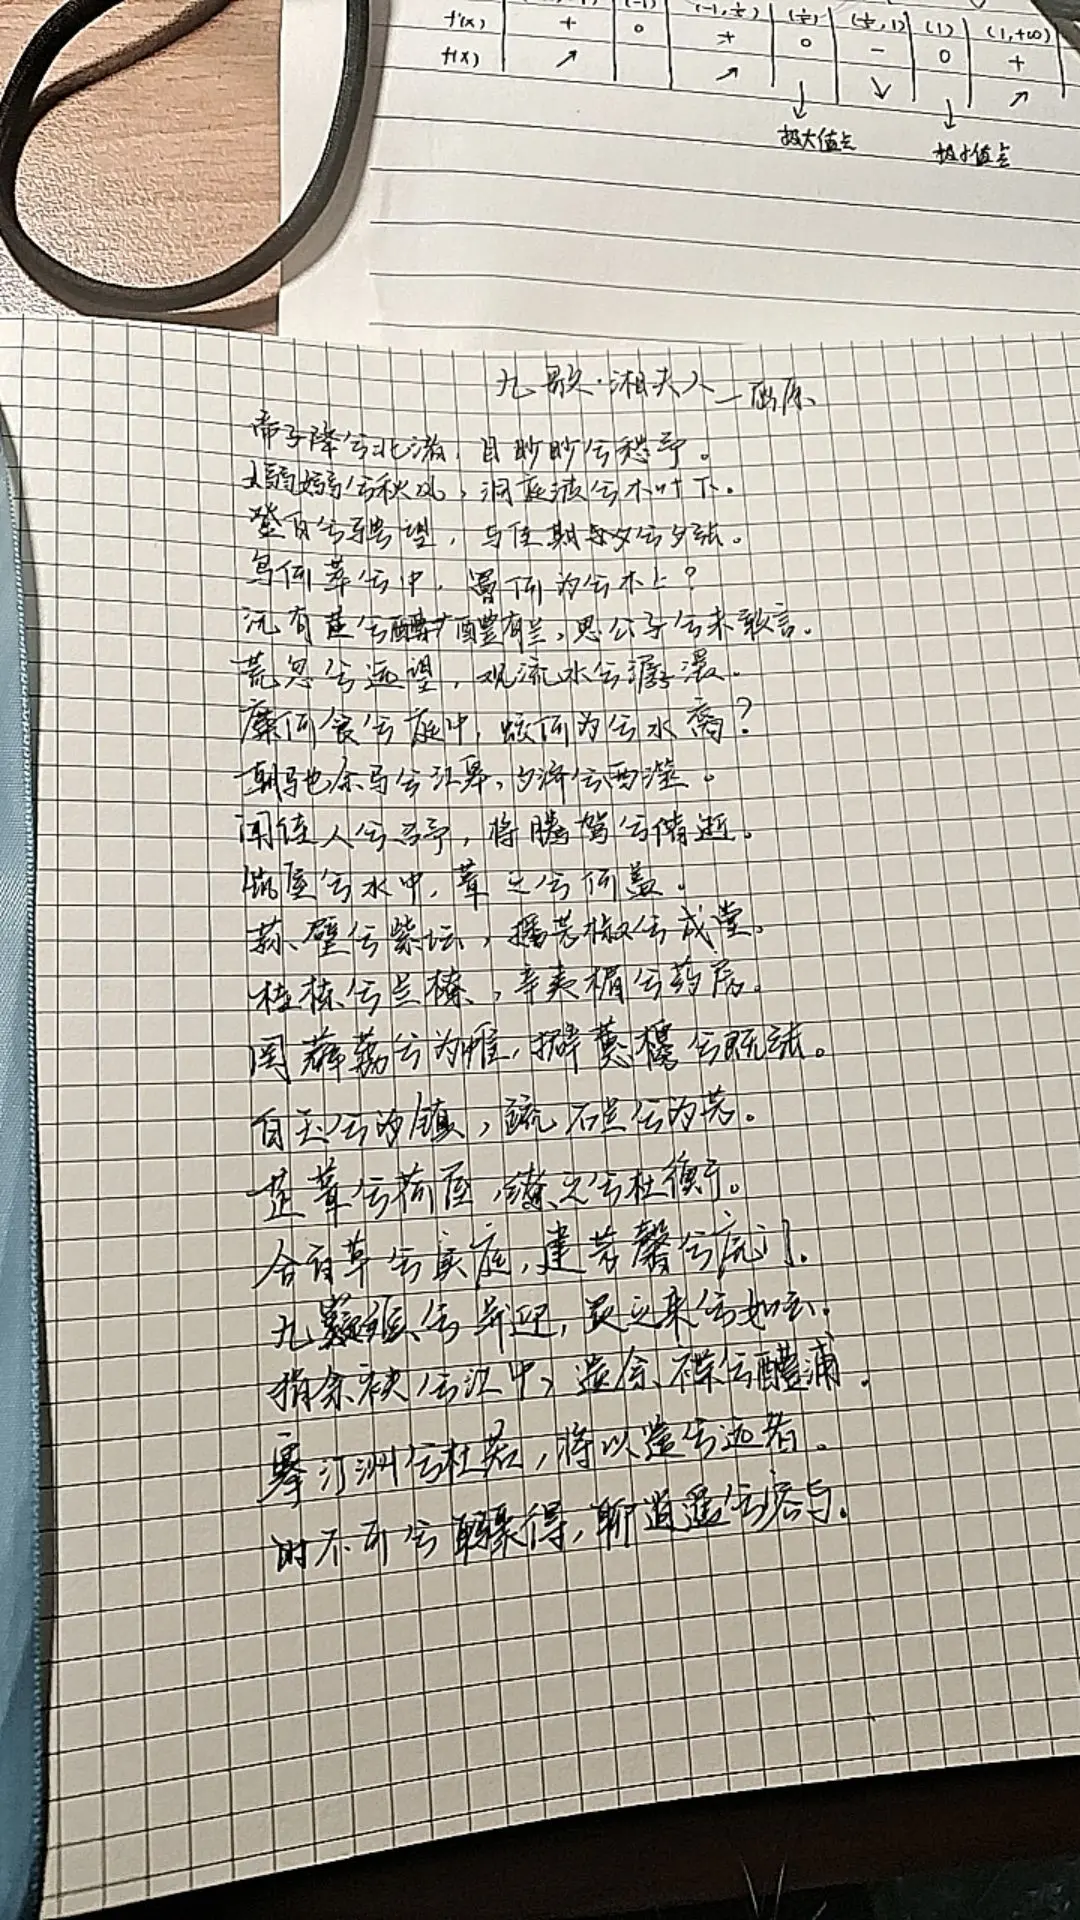 f'(x) + 0 + 0 - 0 +
f(x) ↗ ↗ ↓ ↘ ↓ ↗
(-1) (-1, ) (1) (1,+∞)
极大值点 极小值点
九歌·湘夫人 — 屈原
帝子降兮北渚,目眇眇兮愁予。
嫋嫋兮秋风,洞庭波兮木叶下。
登白兮骋望,与佳期兮夕张。
鸟何萃兮中,罾何为兮木上?
沅有芷兮醴有兰,思公子兮未敢言。
荒忽兮远望,观流水兮潺湲。
麋何食兮庭中,蛟何为兮水裔?
朝驰余马兮江皋,夕济兮西澨。
闻佳人兮召予,将腾驾兮偕逝。
筑室兮水中,葺之兮何盖。
荪壁兮紫坛,播芳椒兮成堂。
桂栋兮兰橑,辛夷楣兮药房。
罔薜荔兮为帷,擗蕙櫋兮既张。
白玉兮为镇,疏石兰兮为芳。
芷葺兮荷屋,缭之兮杜衡。
合百草兮实庭,建芳馨兮庑门。
九嶷缤兮并迎,灵之来兮如云。
捐余袂兮江中,遗余褋兮醴浦。
搴汀洲兮杜若,将以遗兮远者。
时不可兮骤得,聊逍遥兮容与。